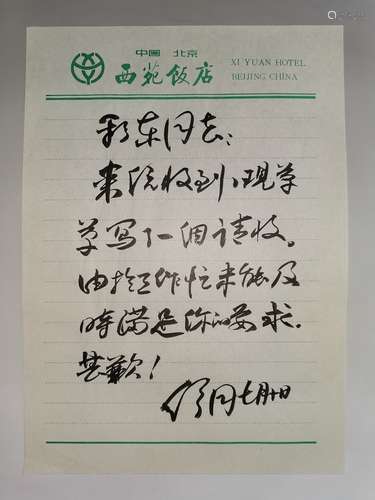 中國 北京
西苑飯店
XI YUAN HOTEL
BEIJING CHINA
东同志：
来信收到，现草
草写了一個请收。
由於工作忙未能及
時满足你的要求。
甚歉！
七月十日